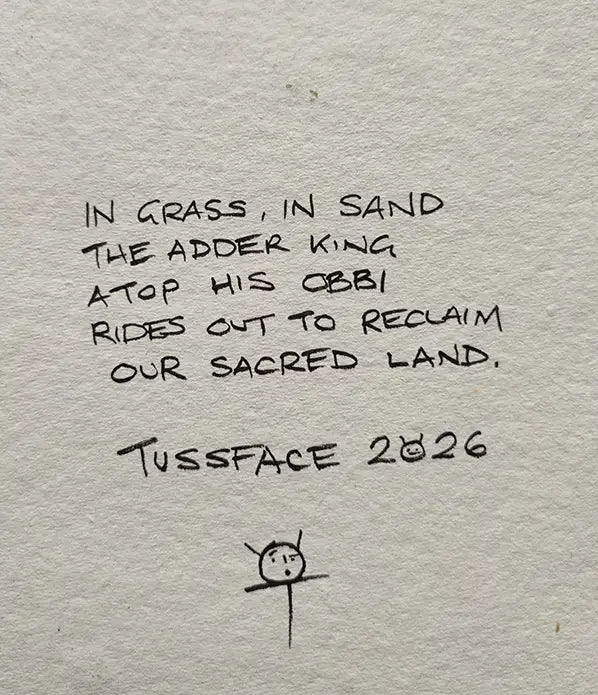 IN GRASS, IN SAND
THE ADDER KING
ATOP HIS OBBI
RIDES OUT TO RECLAIM
OUR SACRED LAND.
TUSSFACE 2026